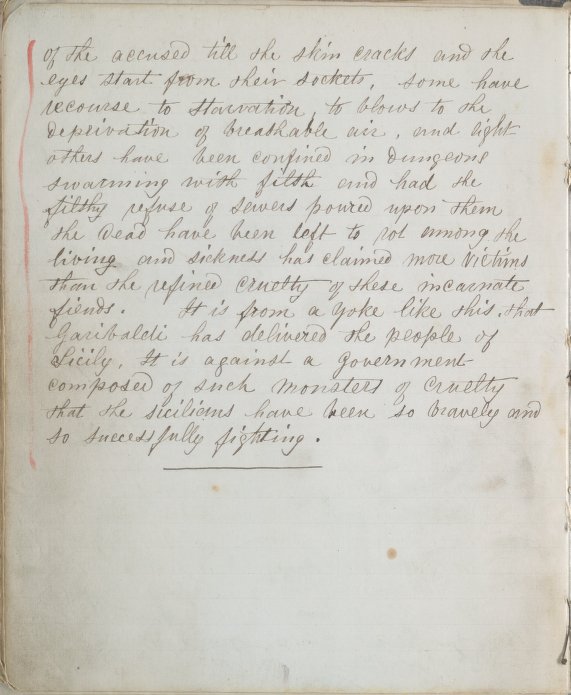 of the accused till the skin cracks and the
eyes start from their sockets, some have
recourse to starvation, to blows to the
deprivation of breathable air, and light
others have been confined in Dungeons
swarming with filth and had the
filthy refuse of sewers poured upon them
the Dead have been left to rot among the
living and sickness has claimed more victims
than the refined cruelty of these incarnate
fiends. It is from a yoke like this, that
Garibaldi has delivered the people of
Sicily, It is against a Government
composed of such monsters of cruelty
that the sicilians have been so bravely and
so successfully fighting.